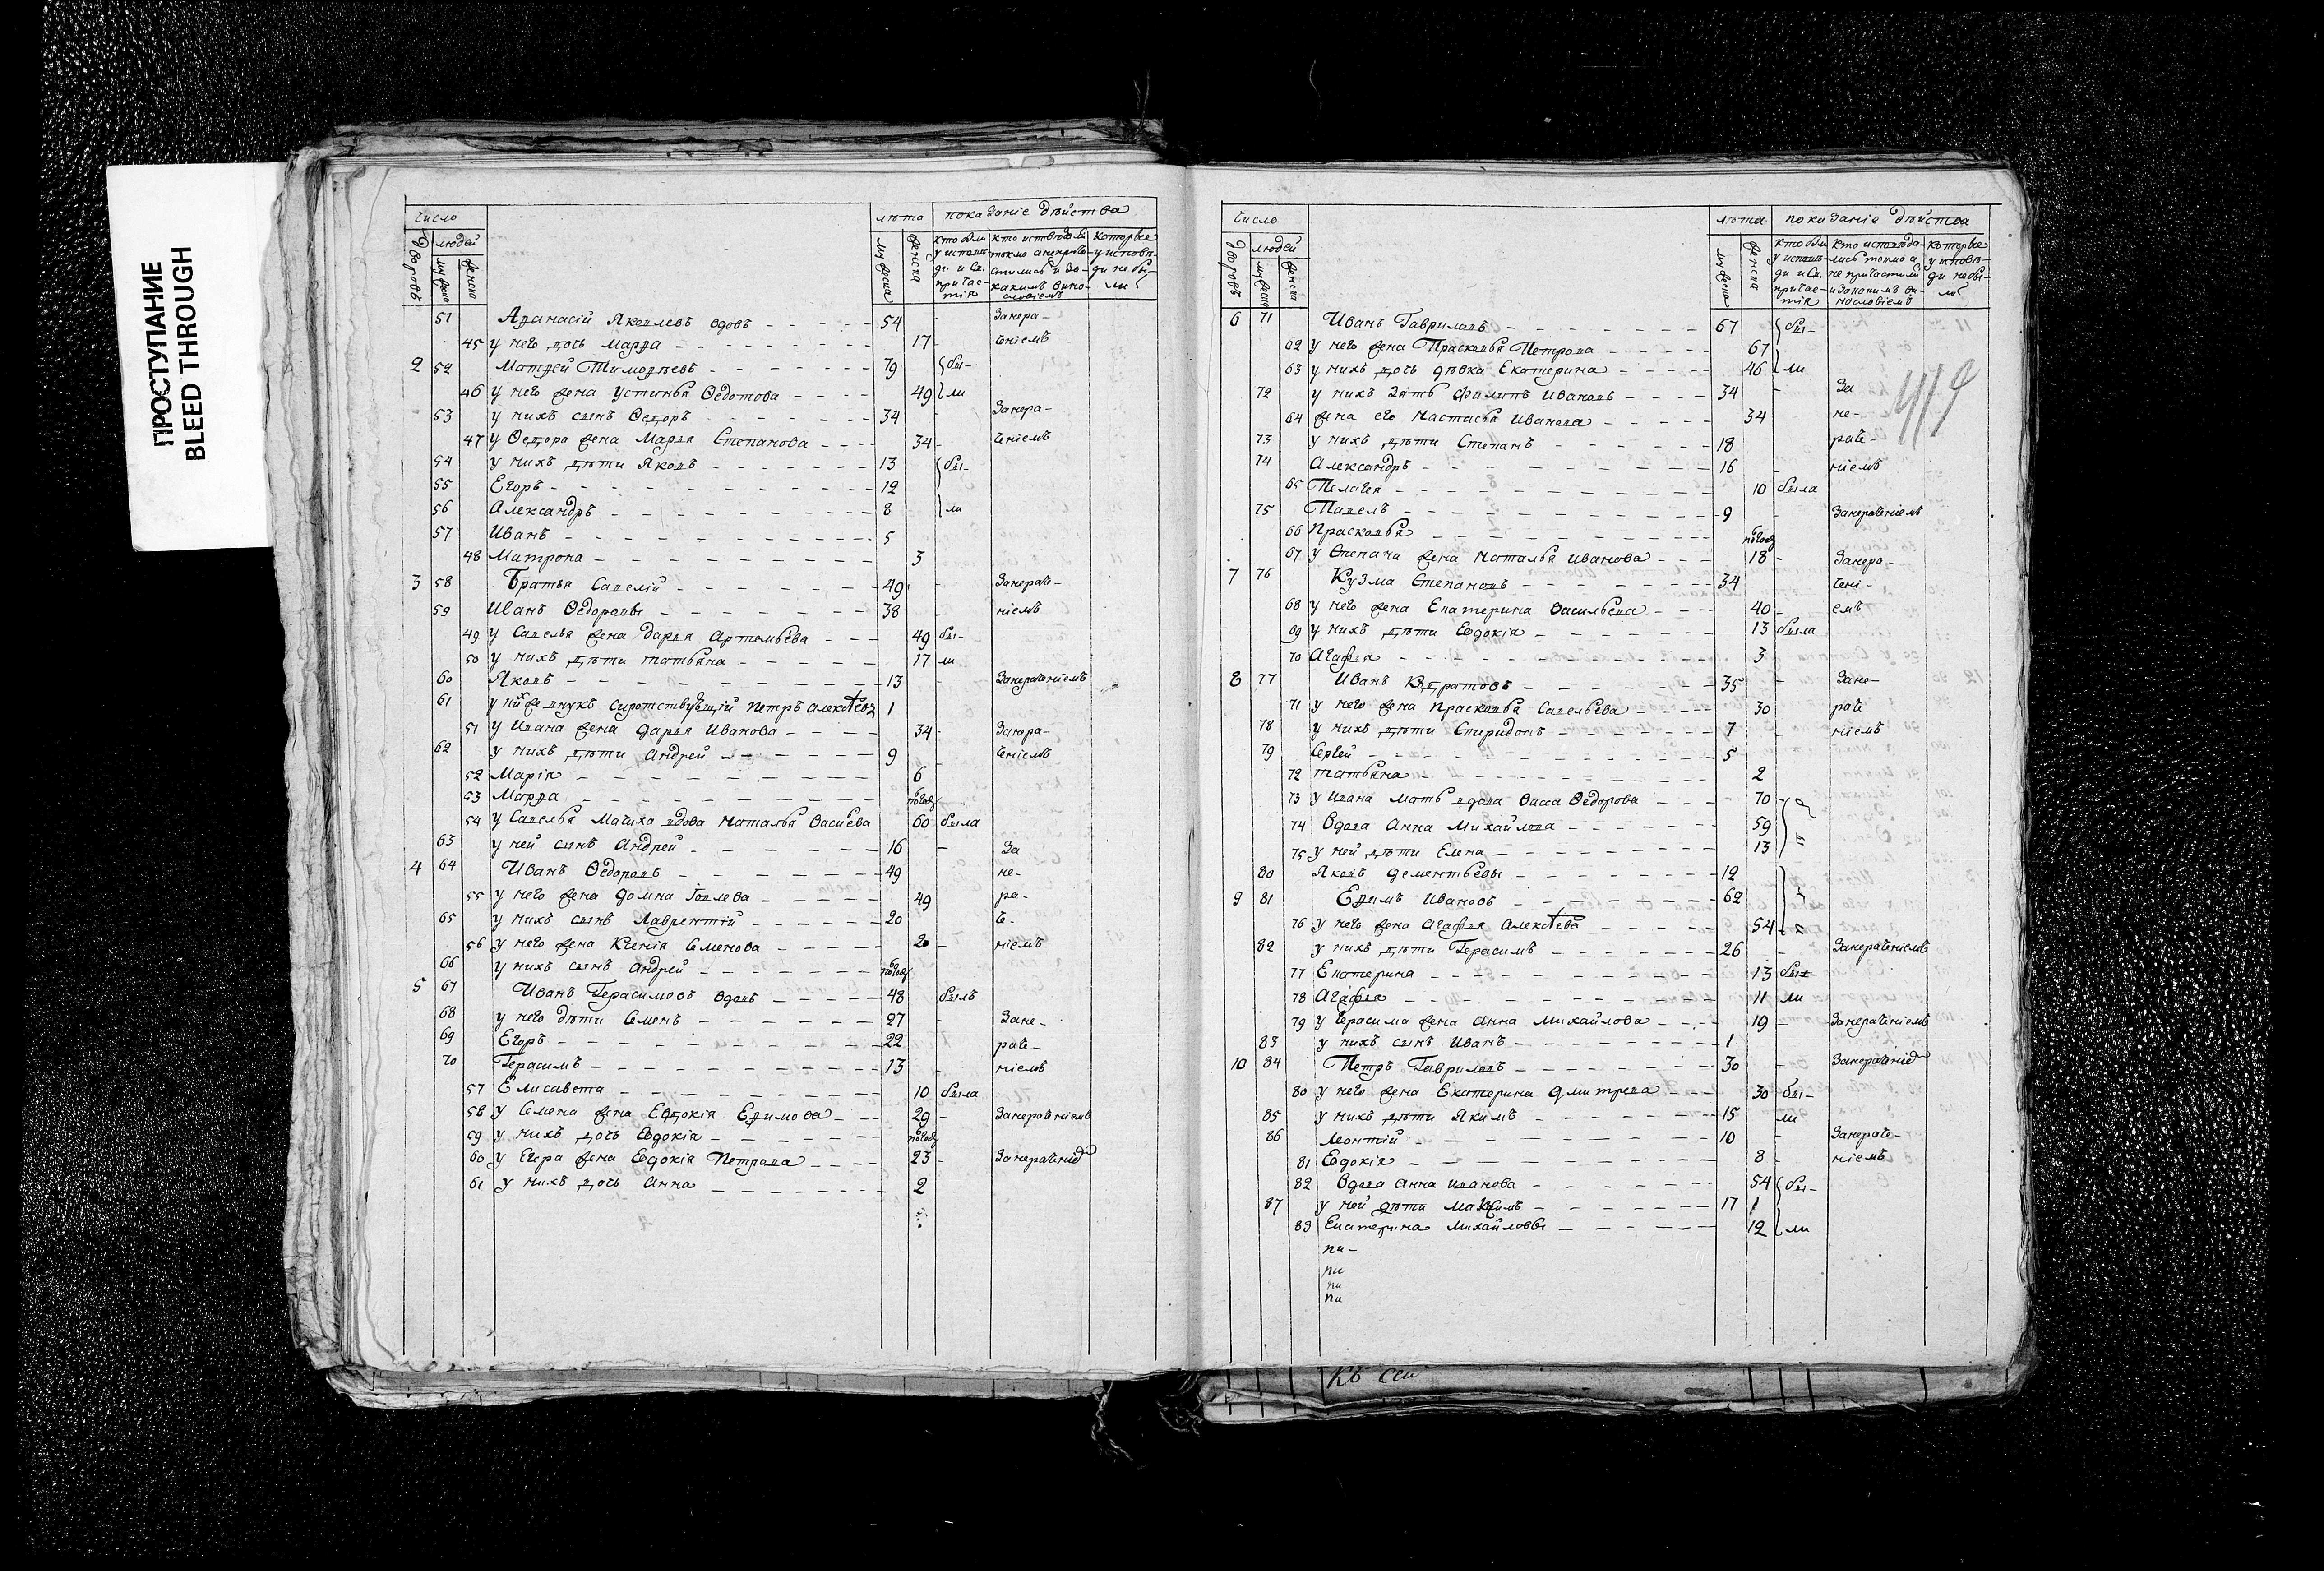 ПРОСТУПАНИЕ
BLEED THROUGH
число лѣта показаніе дѣйства
дворовъ людей мужеска женска мужеска женска
51 Афанасій Яковлевъ вдовъ 54 Занера-
45 у него дочь Марфа 17 ченіемъ
2 52 Матфей Тимофѣевъ 79 бы-
46 у него жена Устинья Ѳедотова 49 ли
53 у нихъ сынъ Ѳедоръ 34 Занера-
47 у Ѳедора жена Марья Степанова 34 ченіемъ
54 у нихъ дѣти Яковъ 13 бы-
55 Егоръ 12
56 Александръ 8 ли
57 Иванъ 5
48 Матрона 3
3 58 Братья Савелій 49 Занерач-
59 Иванъ Ѳедоровы 38 ніемъ
49 у Савелья жена Дарья Артемьева 49 бы-
50 у нихъ дѣти татьяна 17 ли
60 Яковъ 13 Занераченіемъ
61 у нихже внукъ сиротствующій Петръ 1
51 у Ивана жена дарья Иванова 34 Занера-
62 у нихъ дѣти Андрей 9 ченіемъ
52 Марія 6
53 Марфа полгод
54 у Савелья Мачиха вдова Наталья 60 была
63 у ней сынъ Андрей 16 За
4 64 Иванъ Ѳедоровъ 49 не-
55 у него жена домна 49 ра-
65 у нихъ сынъ Лаврентій 20 че-
56 у него жена Ксенія Семенова 20 ніемъ
66 у нихъ сынъ Андрей полгод
5 67 Иванъ Герасимовъ вдовъ 48 былъ
68 у него дѣти Семенъ 27 Зане-
69 Егоръ 22 раче-
70 Герасимъ 13 ніемъ
57 Елисавета 10 была
58 у Семена жена Евдокія Ефимова 29 Занераченіемъ
59 у нихъ дочь Евдокія полгод
60 у Егора жена Евдокія Петрова 23 Занераченіе
61 у нихъ дочь Анна 2
число лѣта показаніе дѣйства
дворовъ людей мужеска женска мужеска женска
6 71 Иванъ Гавриловъ 67 бы-
62 у него жена Прасковья Петрова 67
63 у нихъ дочь дѣвка Екатерина 46 ли
72 у нихъ зять Филипъ Ивановъ 34 За
64 жена его Настасья Иванова 34 не-
73 у нихъ дѣти Степанъ 18 раче-
74 Александръ 16 ніемъ
65 Пелагея 10 была
75 Павелъ 9 Занераченіемъ
66 Прасковья полгод
67 у Степана жена Наталья Иванова 18 Занера-
7 76 Кузма Степановъ 34 чені-
68 у него жена Екатерина Васильева 40 емъ
69 у нихъ дѣти Евдокія 13 была
70 Агафья 3
8 77 Иванъ Кодратовъ 35 Зане-
71 у него жена Прасковья Савельева 30 раче
78 у нихъ дѣти Спиридонъ 7 ніемъ
79 Сергей 5
72 татьяна 2
73 у Ивана мать вдова Васса Ѳедорова 70
74 Вдова Анна Михайлова 59
75 у ней дѣти Елена 13
80 Яковъ дементьевы 12
9 81 Ефимъ Ивановъ 62
76 у него жена Агафья Алексѣева 54
82 у нихъ дѣти Герасимъ 26 Занераченіемъ
77 Екатерина 13 бы-
78 Агафья 11 ли
79 у Герасима жена Анна Михайлова 19 Занераченіемъ
83 у нихъ сынъ Иванъ 1
10 84 Петръ Гавриловъ 30 Занераченіе
80 у него жена Екатерина дмитрева 30 бы-
85 у нихъ дѣти Якимъ 15 ли
86 Леонтій 10 Занераче-
81 Евдокія 8 ніемъ
82 Вдова Анна иванова 54 бы-
87 у ней дѣти Максимъ 17
83 Екатерина Михайловы 12 ли
419
Къ сей